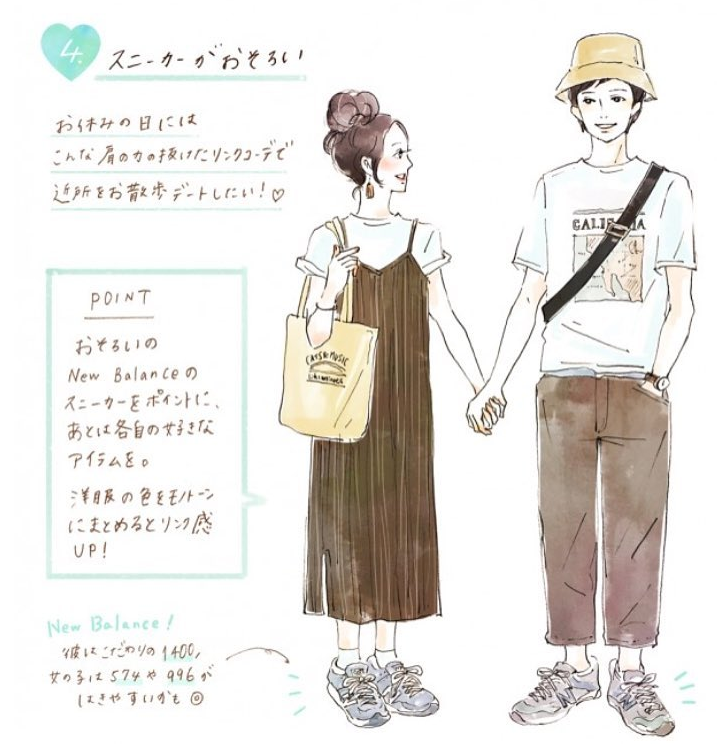 4.
スニーカーがおそろい
お休みの日には
こんな肩の力の抜けたリンクコーデで
近所をお散歩デートしたい!♡
POINT
おそろいの
New Balanceの
スニーカーをポイントに、
あとは各自の好きな
アイテムを。
洋服の色をモノトーン
にまとめるとリンク感
UP!
New Balance!
彼はこだわりの1400,
女の子は574や996が
はきやすいかも◎
CATS & MUSIC